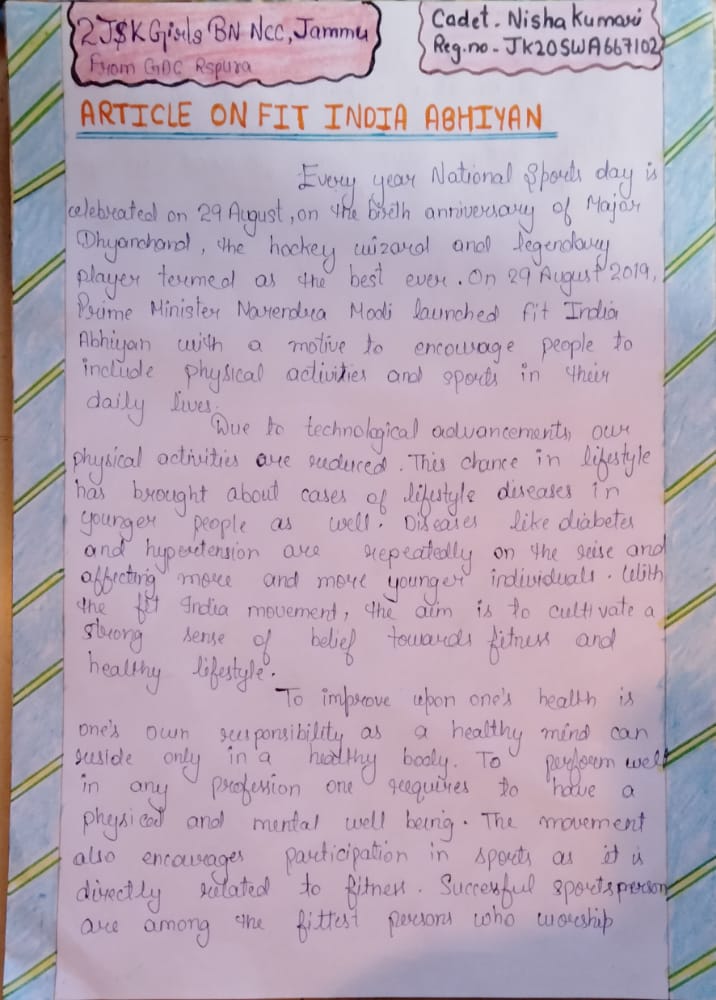 2 J&K Girls BN NCC, Jammu
From GDC Rspura
Cadet. Nisha Kumari
Reg.no - JK20SWA667102
ARTICLE ON FIT INDIA ABHIYAN
Every year National Sports day is
celebrated on 29 August, on the birth anniversary of Major
Dhyanchand, the hockey wizard and legendary
player termed as the best ever. On 29 August 2019,
Prime Minister Narendra Modi launched fit India
Abhiyan with a motive to encourage people to
include physical activities and sports in their
daily lives.
Due to technological advancements, our
physical activities are reduced. This chance in lifestyle
has brought about cases of lifestyle diseases in
younger people as well. Diseases like diabetes
and hypertension are repeatedly on the reise and
affecting more and more younger individuals. With
the fit India movement, the aim is to cultivate a
strong sense of belief towards fitness and
healthy lifestyle.
To improve upon one's health is
one's own responsibility as a healthy mind can
reside only in a healthy body. To perform well
in any profession one requires to have a
physical and mental well being. The movement
also encourages participation in sports as it is
directly related to fitness. Successful sportsperson
are among the fittest persons who worship